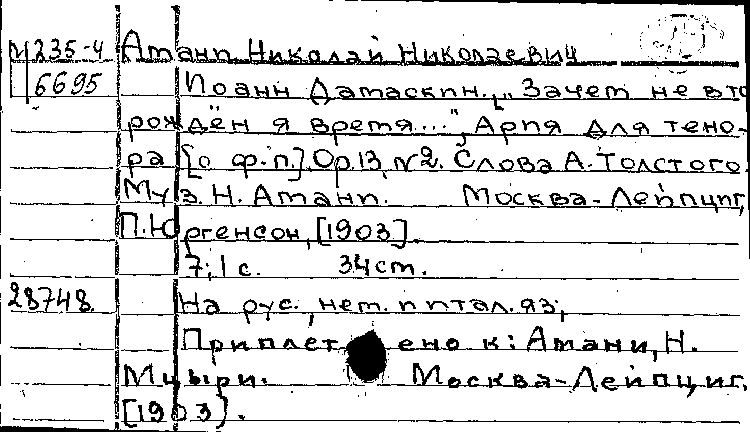 М 235-4 Амани Николай Николаевич
6695 Иоанн Дамаскин. "Зачем не в то
рождён я время...", Ария для тено-
ра [с ф.-п.]. Ор. 13, №2. Слова А. Толстого.
Муз. Н. Амани. Москва-Лейпциг,
П. Юргенсон, [1903].
7; 1 с. 34 см.
28748. На рус., нем. и итал. яз;
Приплетено к: Амани, Н.
Мцыри. Москва-Лейпциг,
[1903].